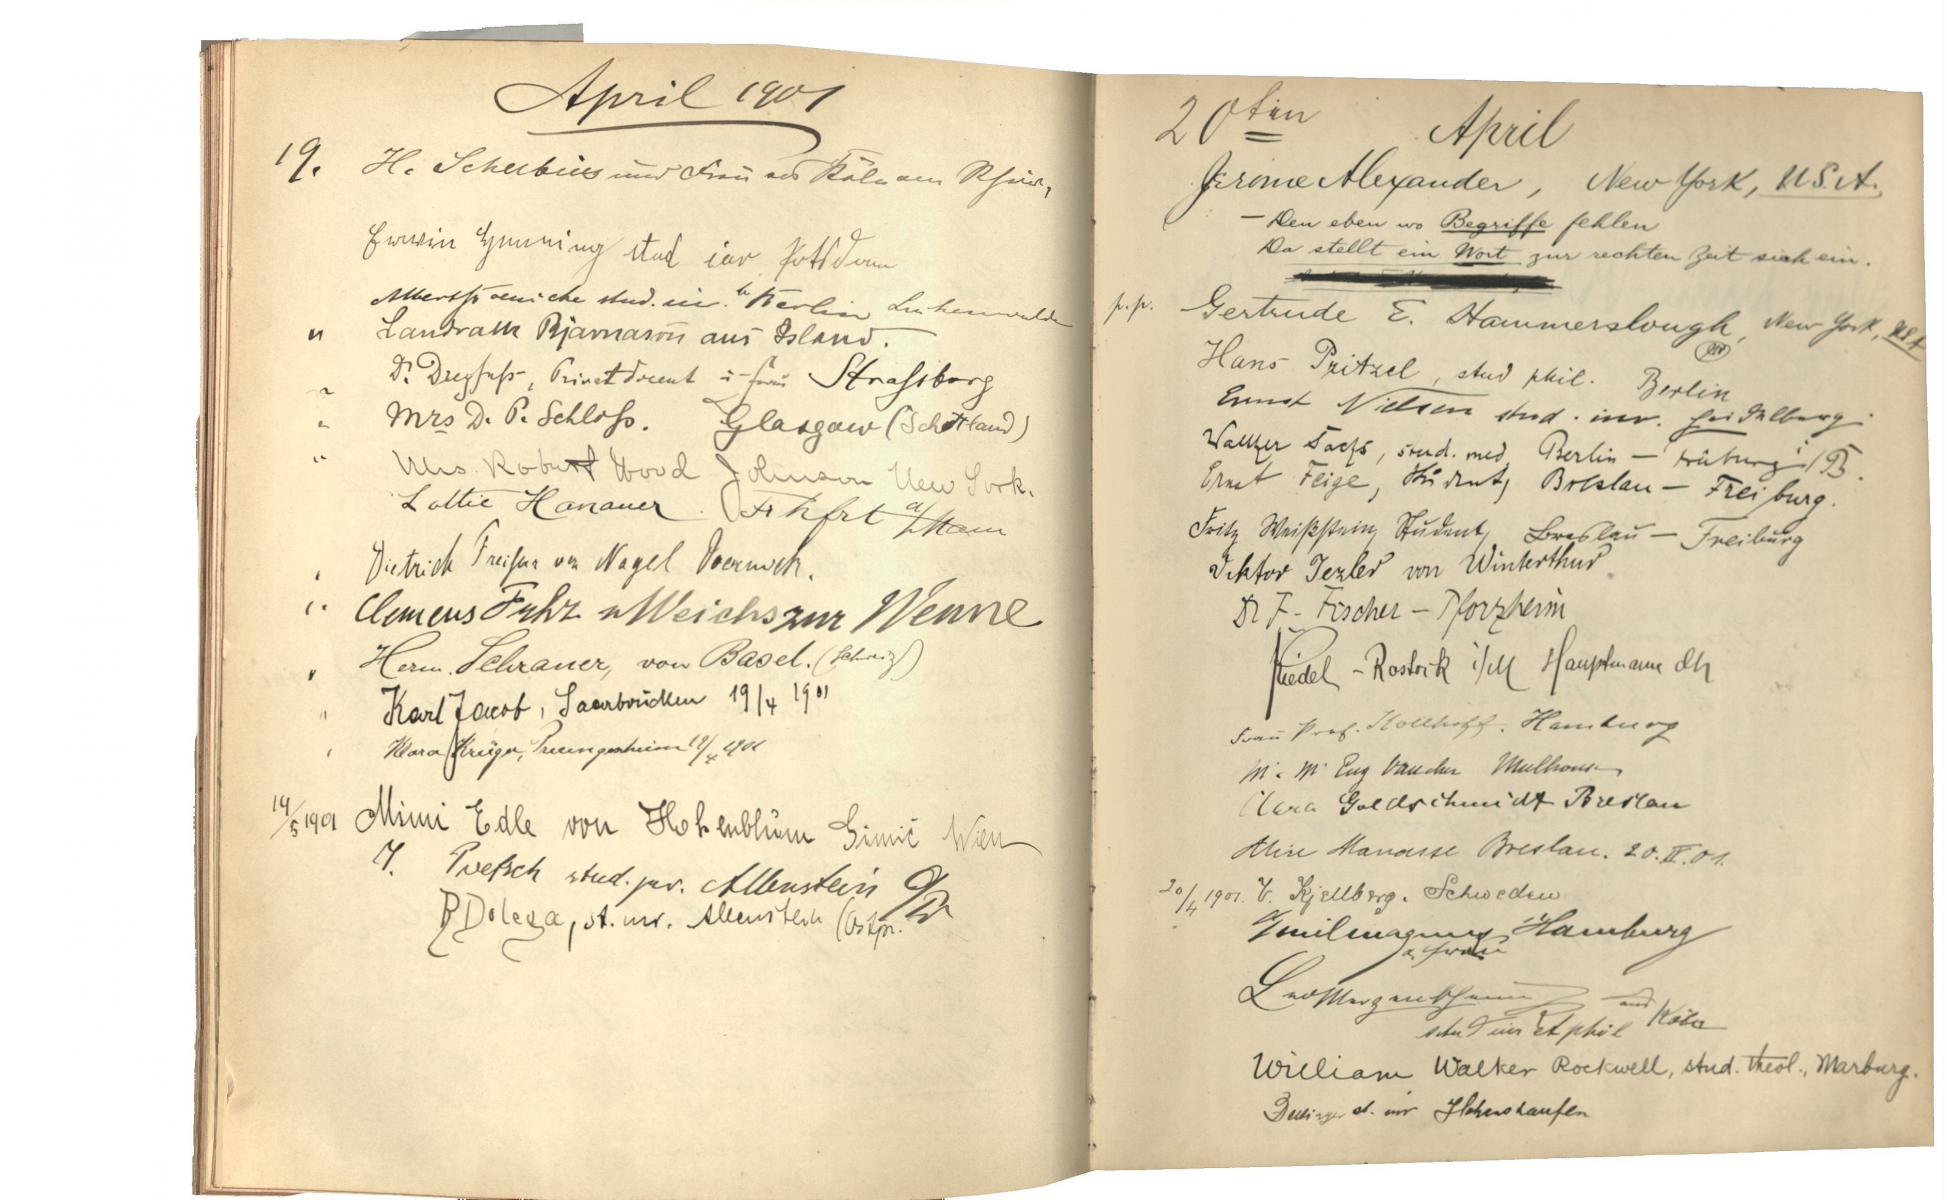 April 1901
19. H. Scheibius und Frau aus Köln am Rhein,
Erwin stud iur Potsdam
stud. iur. Berlin Luckenwalde
" Landrath Bjarnason aus Island.
" Dr. Dreyfuss, Privatdocent u Frau Strassburg
" Mrs D. P. Schloss. Glasgow (Schottland)
" Mrs. Robert Wood Johnson New York.
Lottie Hanauer. Frkfrt a/Main
" Dietrich Freiherr von Nagel Doernick.
" Clemens Frhr v Weichs zur Wenne
" Herm. Schraner, von Basel. (Schweiz)
" Karl Jacob, Saarbrücken 19/4 1901
" Klara Krüger, Preungesheim 19/4 1901
14/5 1901 Mimi Edle von Hohenblum Wien
stud. jur. Allenstein O/Pr
B Dolega, st. iur. Allenstein (Ostpr.
20ten April
Jerome Alexander, New York, U.S.A.
— Den eben wo Begriffe fehlen
Da stellt ein Wort zur rechten Zeit sich ein.
p.p. Gertrude E. Hammerslough, New York, USA
Hans Pritzel, stud phil. Berlin
Ernst Nielsen stud. iur. Heidelberg.
Walther Sachs, stud. med Berlin — Freiburg i/B.
Ernst Feige, Student, Breslau — Freiburg.
Fritz Weißstein, Student, Breslau — Freiburg
Viktor Tezler von Winterthur
Dr F. Fischer — Pforzheim
Riedel — Rostock i/M Hauptmann
Frau Prof. Hamburg
M. M. Eug Vaucher Mulhouse
Clara Goldschmidt Breslau
Alice Manasse Breslau. 20.IV.01.
20/4 1901. V. Kjellberg. Schweden
Emil Magnus Hamburg
u. Frau
Leo Morgenthau aus Köln
stud iur et phil
William Walker Rockwell, stud. theol., Marburg.
st. iur Hohenstaufen